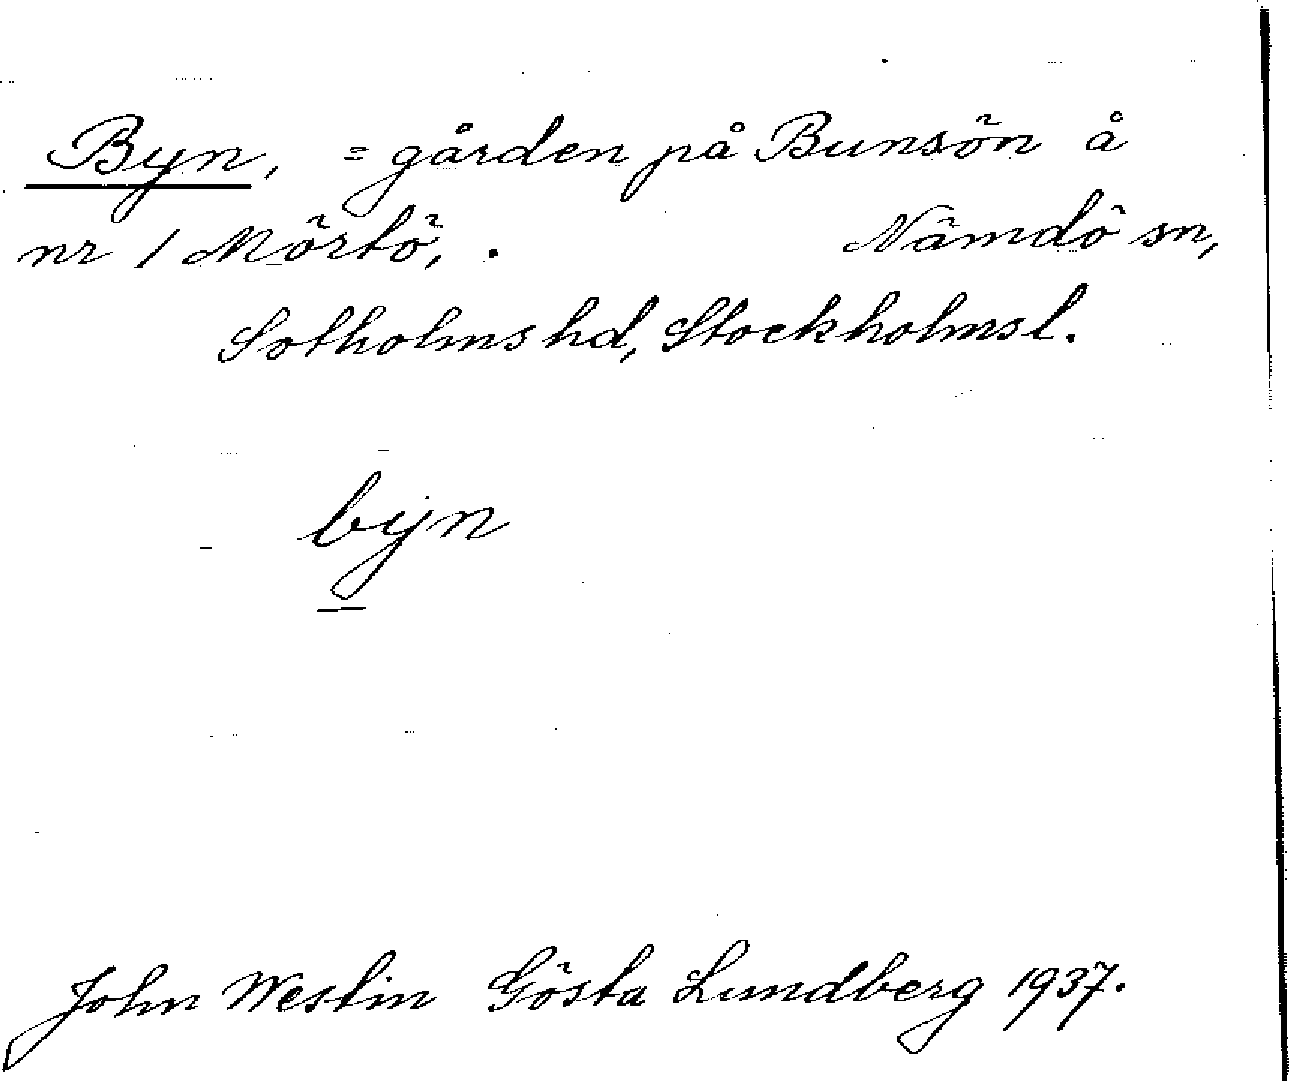 Byn, = gården på Bunsön å
nr 1 Mörtö, . Nämdö sn,
Sotholms hd, Stockholms l.
byn
John Westin Gösta Lundberg 1937.